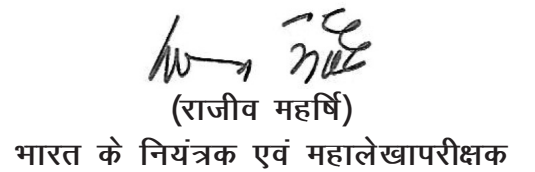 (राजीव महर्षि)
भारत के नियंत्रक एवं महालेखापरीक्षक